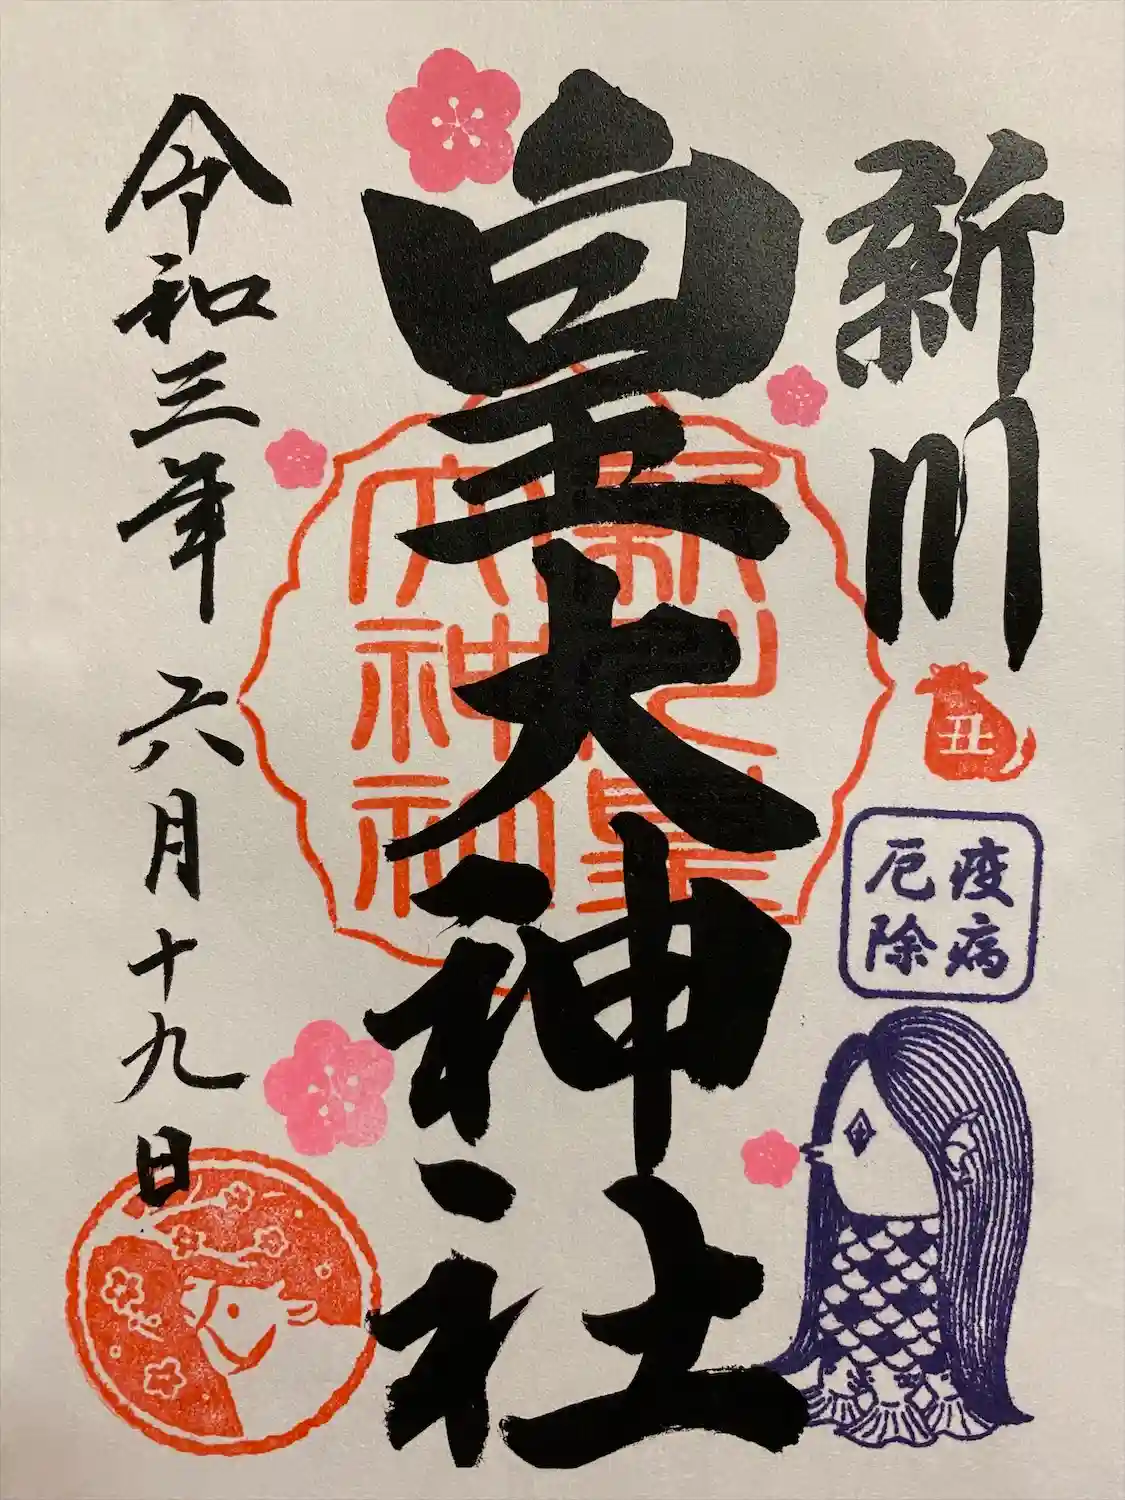 新川
丑
疫病
厄除
皇大神社
新川皇
大神社
令和三年 六月十九日